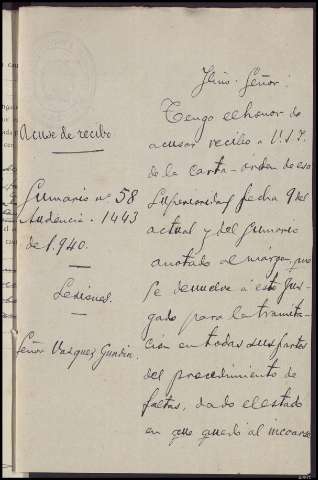 Acuse de recibo
Sumario nº. 58
Audencia. 1443
de 1.940.
Lesiones.
Señor Vazquez Gundin
Ilmo. Señor:
Tengo el honor de
acusar recibo a V.S.I.
de la carta-orden de esa
Superioridad fecha 9 del
actual y del sumario
anotado al márgen, que
se devuelve á este Juz-
gado para la tramita-
cion en todas sus partes
del procedimiento de
faltas, dado el estado
en que quedó al incoarse